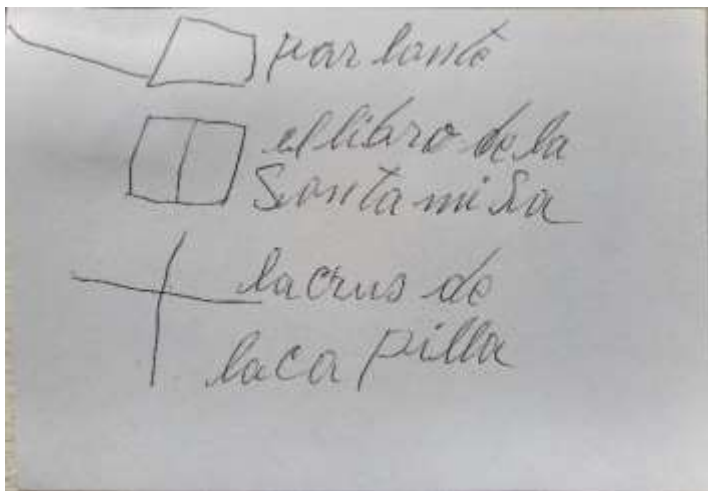 par lante
el libro de la
Santa mi sa
la crus de
la ca pilla